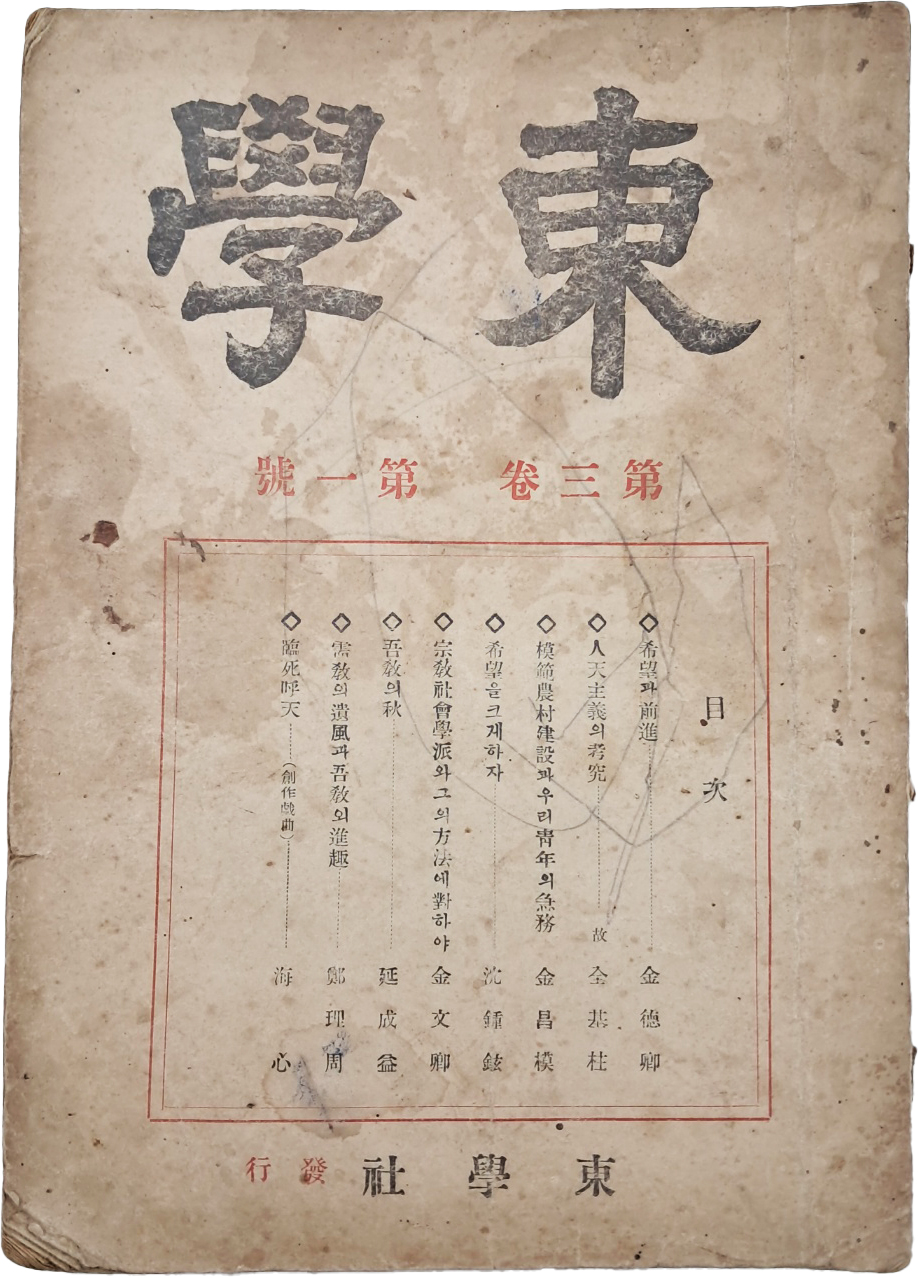 東學
第三卷 第一號
目次
◇希望과前進……金德卿
◇人天主義의考究……故全基柱
◇模範農村建設과우리靑年의急務 金昌模
◇希望을크게하자……沈鍾鉉
◇宗敎社會學派와그의方法에對하야 金文卿
◇吾敎의秋……延成益
◇儒敎의遺風과吾敎의進趣……鄭理周
◇臨死呼天……(創作戱曲)……海心
東學社 發行